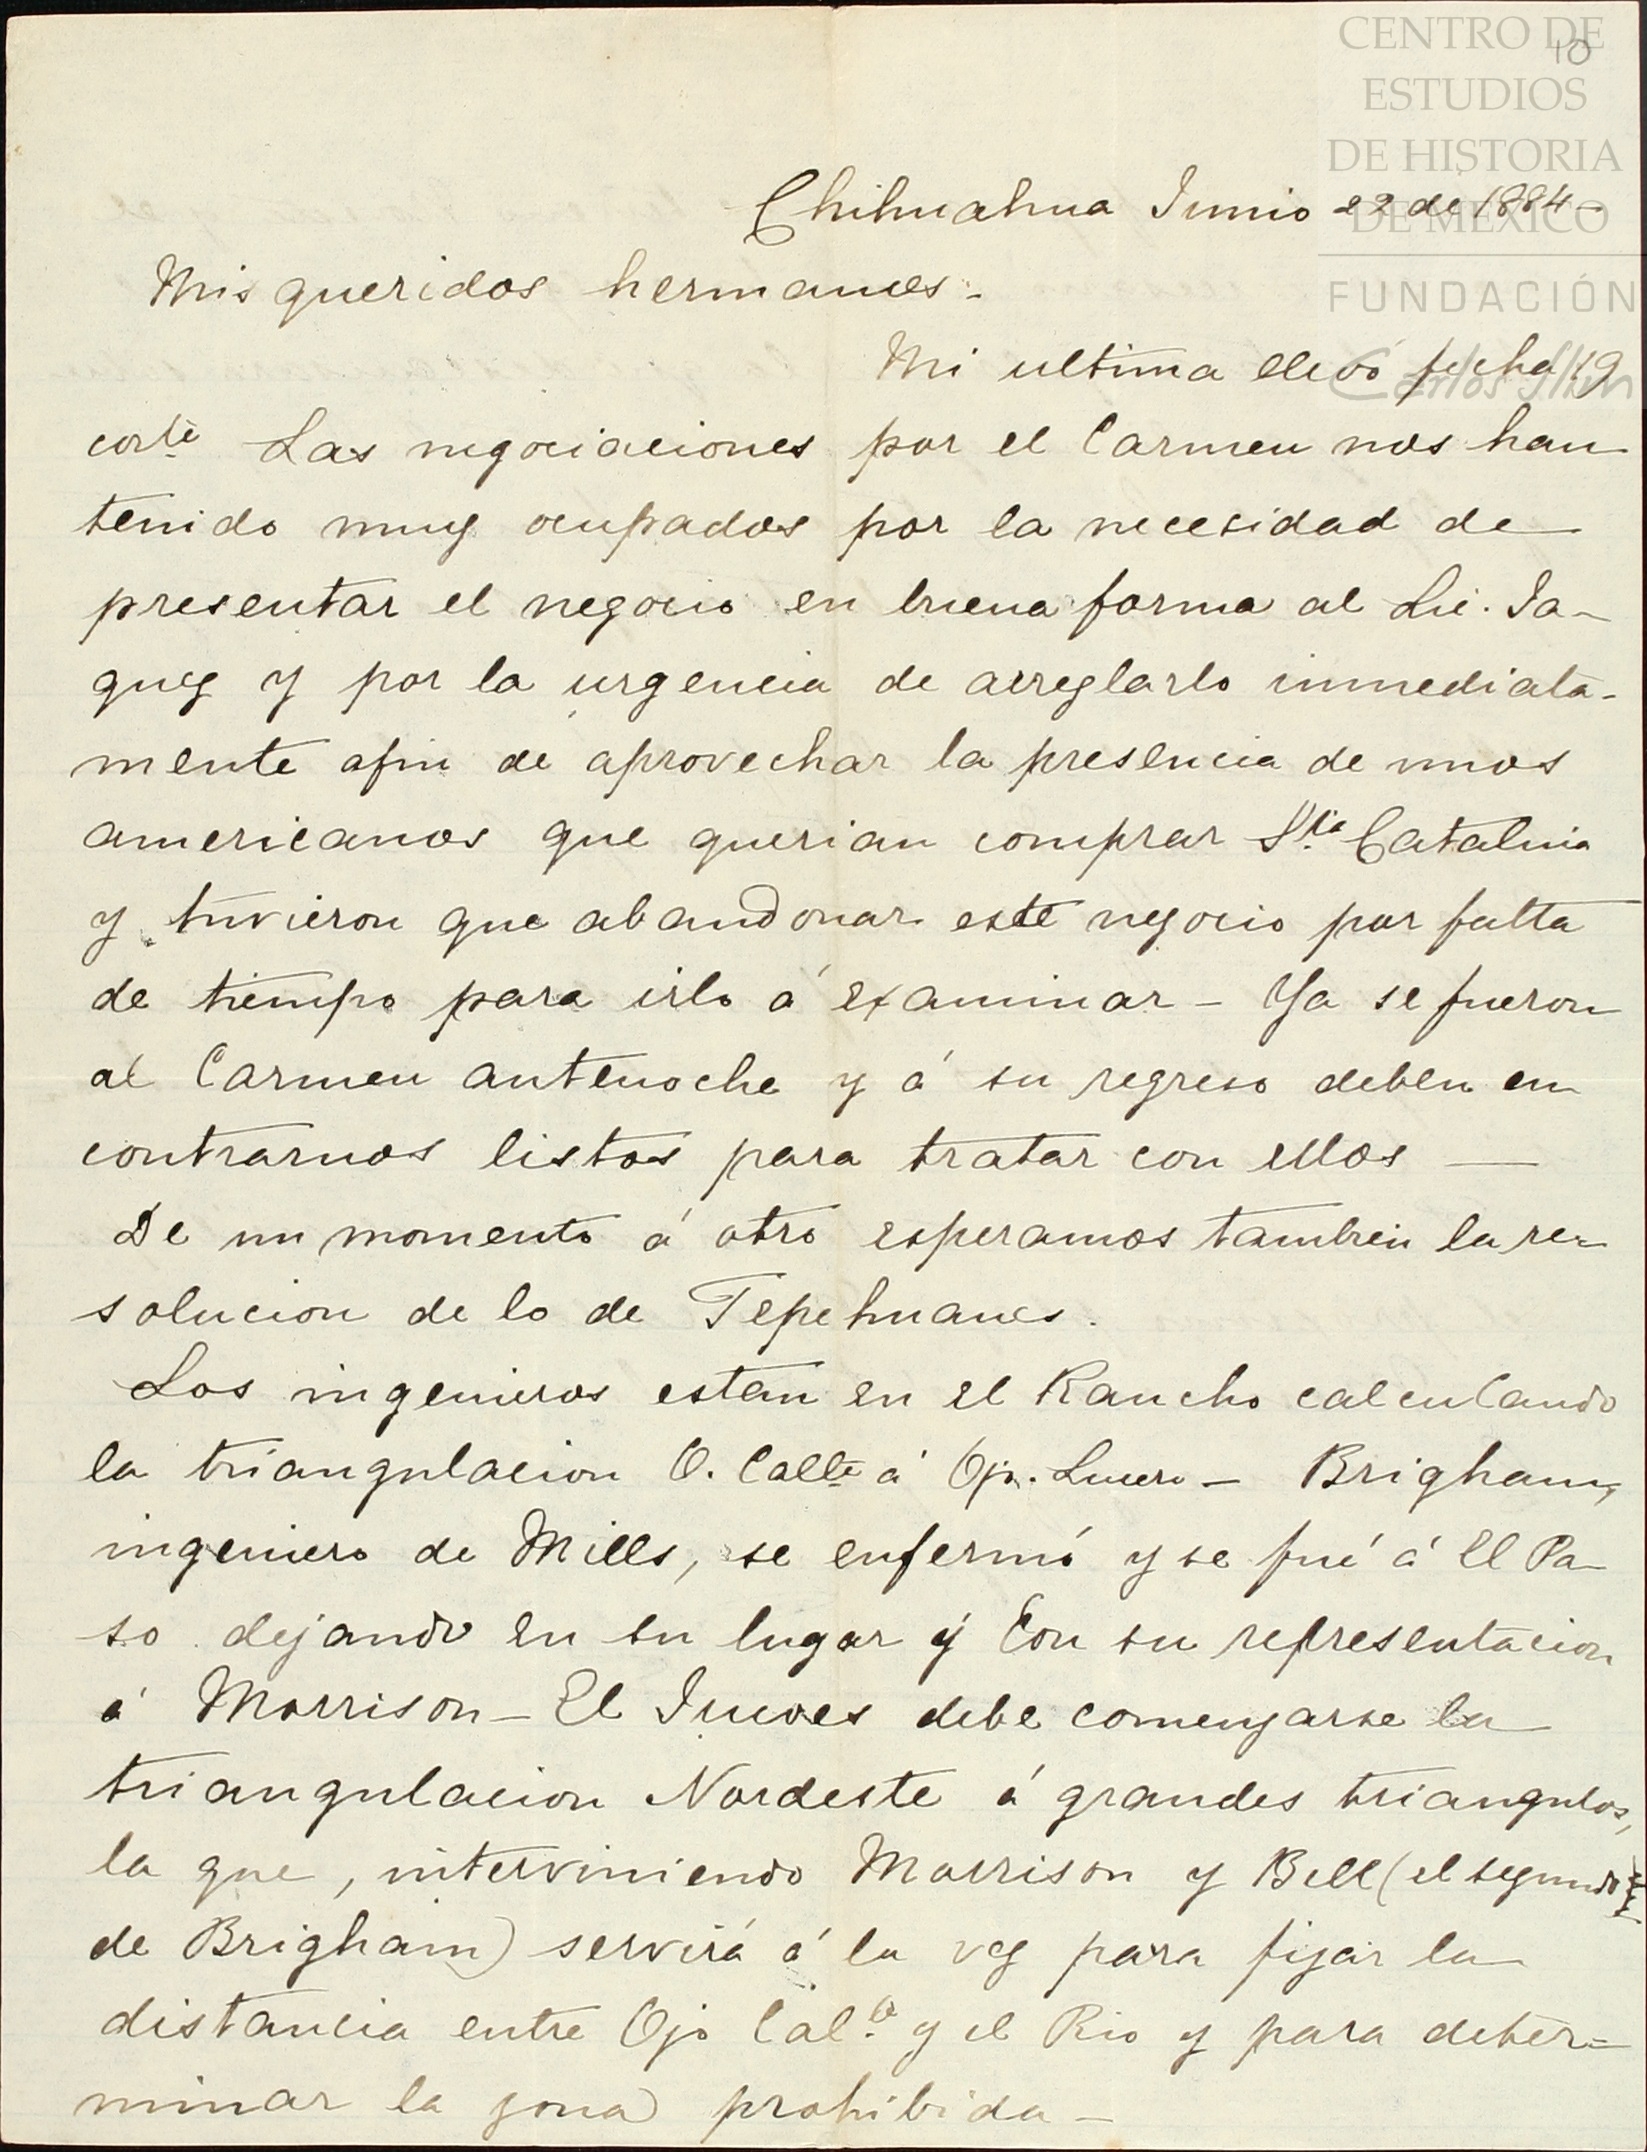 CENTRO DE
ESTUDIOS
DE HISTORIA
DE MÉXICO
FUNDACIÓN
Carlos Slim
10
Chihuahua Junio 22 de 1884-
Mis queridos hermanos.
Mi ultima llevó fecha 19
corte Las negociaciones por el Carmen nos han
tenido muy ocupados por la necesidad de
presentar el negocio en buena forma al Lic. Ja-
quez y por la urgencia de arreglarlo inmediata-
mente afin de aprovechar la presencia de unos
americanos que querian comprar Sta Catalina
y tuvieron que abandonar este negocio por falta
de tiempo para irlo á examinar - Ya se fueron
al Carmen antenoche y á su regreso deben en
contrarnos listos para tratar con ellos —
De un momento á otro esperamos tambien la re-
solucion de lo de Tepehuanes.
Los ingenieros estan en el Rancho calculando
la triangulacion O. Calte á Ojo. Lucero - Brigham,
ingeniero de Mills, se enfermó y se fué á El Pa-
so dejando en su lugar y con su representacion
á Morrison - El Jueves debe comenzarse la
triangulacion Nordeste á grandes triangulos,
la que, interviniendo Morrison y Bell (el segundo
de Brigham) servirá á la vez para fijar la
distancia entre Ojo Cal.e y el Rio y para deter-
minar la zona prohibida -